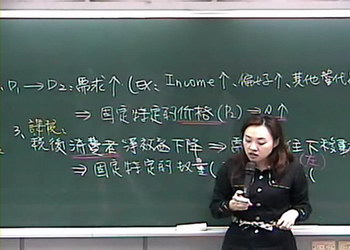 D₁ → D₂:需求↑ (Ex: Income↑、偏好↑、其他替代
⇒ 固定特定的价格 (P₂) ⇒ Q↑
3、課稅:
稅後消費者 下降 ⇒ 往下移動
⇒ 固定特定的数量 ( (左)